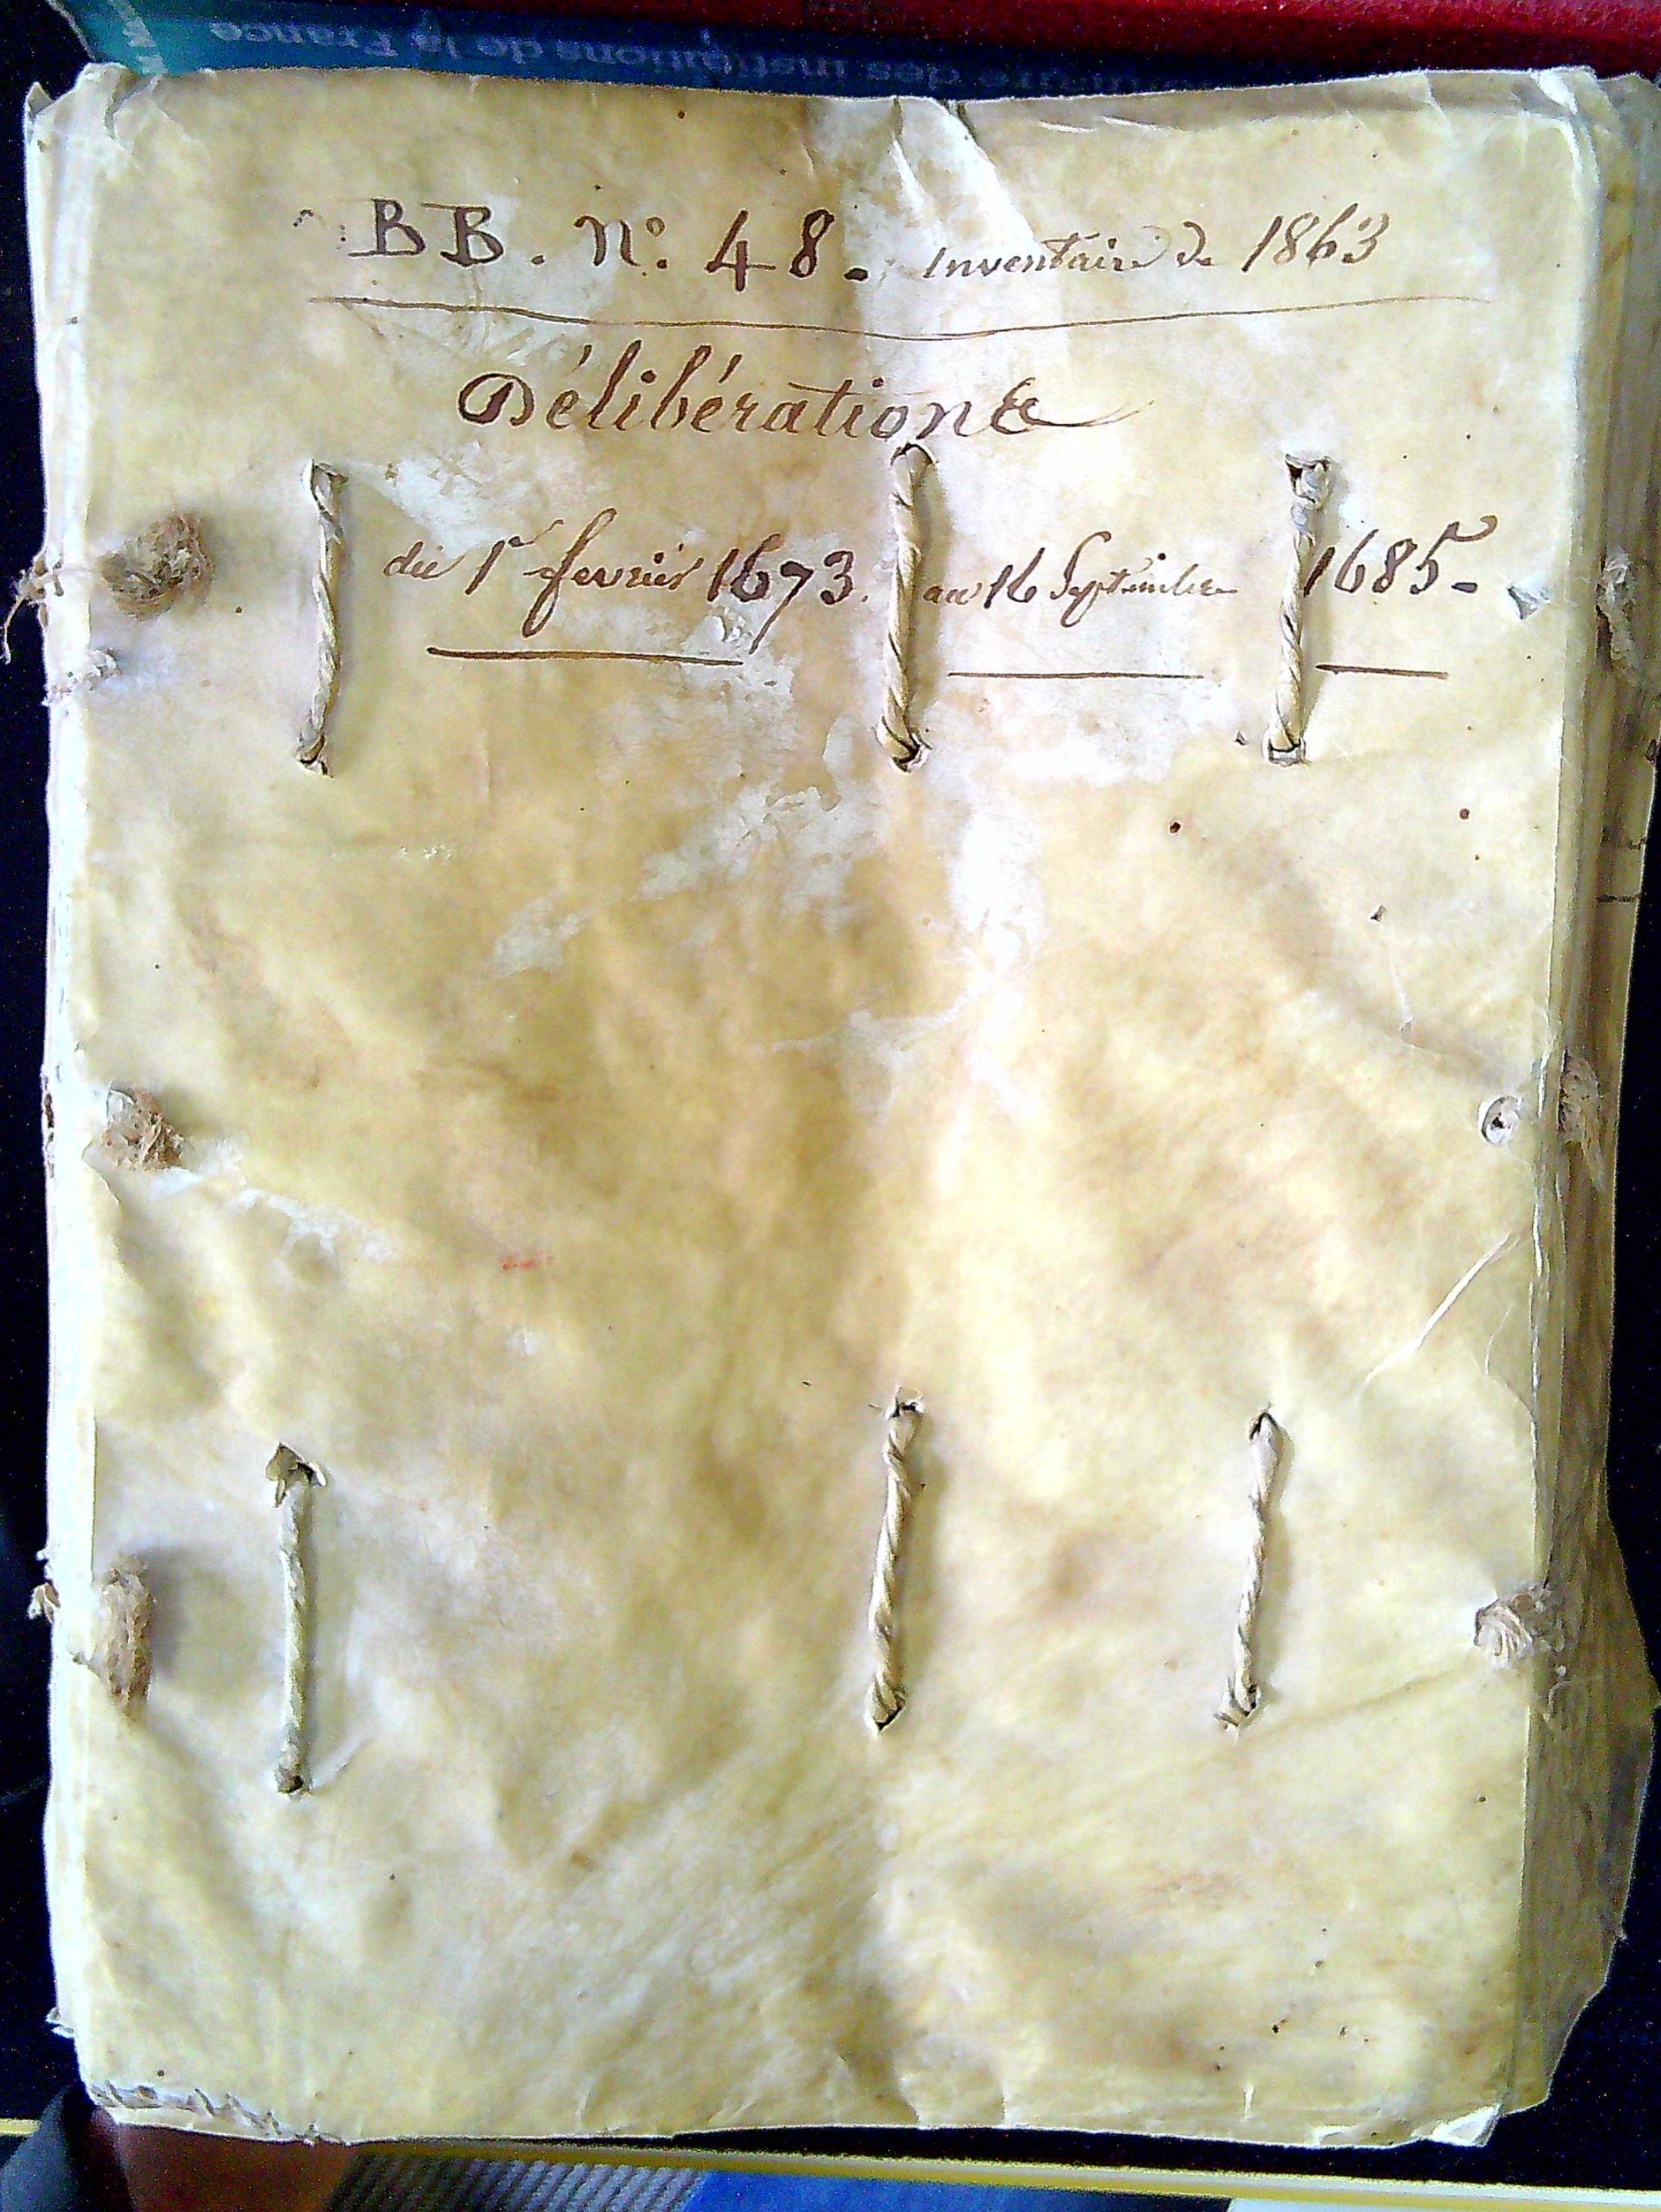 des institutions de la France
BB. N°. 48. Inventaire de 1863
Délibérations
du 1er fevrier 1673. au 16 Septembre 1685-